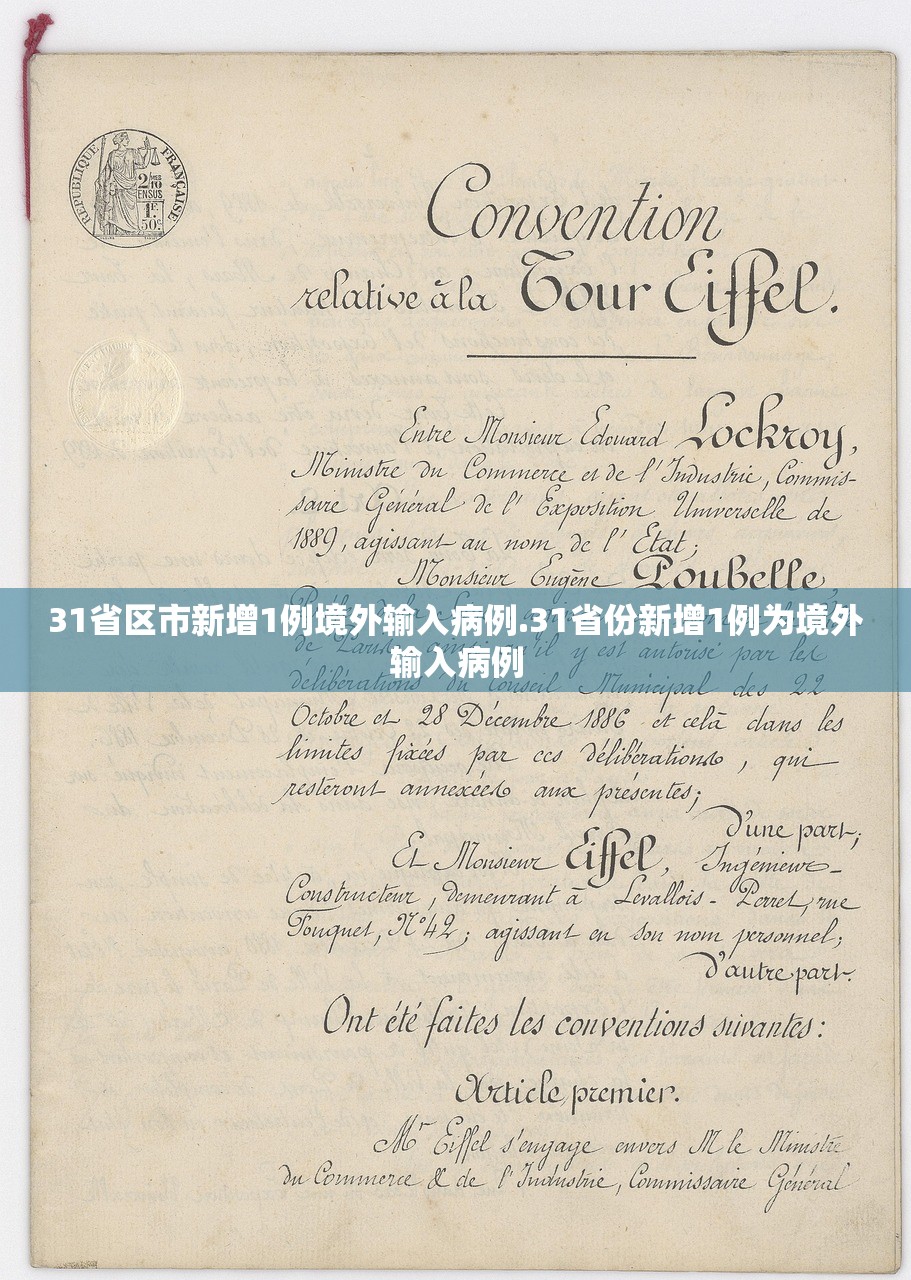 RÉPUBLIQUE FRANÇAISE
2/10
EN SUS
1F.
50c
Convention
relative à la Tour Eiffel.
Entre Monsieur Edouard Lockroy,
Ministre du Commerce et de l'Industrie, Commis-
saire Général de l'Exposition Universelle de
1889, agissant au nom de l'Etat;
Monsieur Eugène Poubelle,
31省区市新增1例境外输入病例.31省份新增1例为境外
de Paris qu'il y est autorisé par les
输入病例
délibérations du Conseil Municipal des 22
Octobre et 28 Décembre 1886 et celà dans les
limites fixées par ces délibérations, qui
resteront annexées aux présentes;
d'une part;
Et Monsieur Eiffel, Ingénieur-
Constructeur, demeurant à Levallois-Perret, rue
Fouquet, N° 42; agissant en son nom personnel;
d'autre part.
Ont été faites les conventions suivantes:
Article premier.
Mr Eiffel s'engage envers M le Ministre
du Commerce & de l'Industrie, Commissaire Général